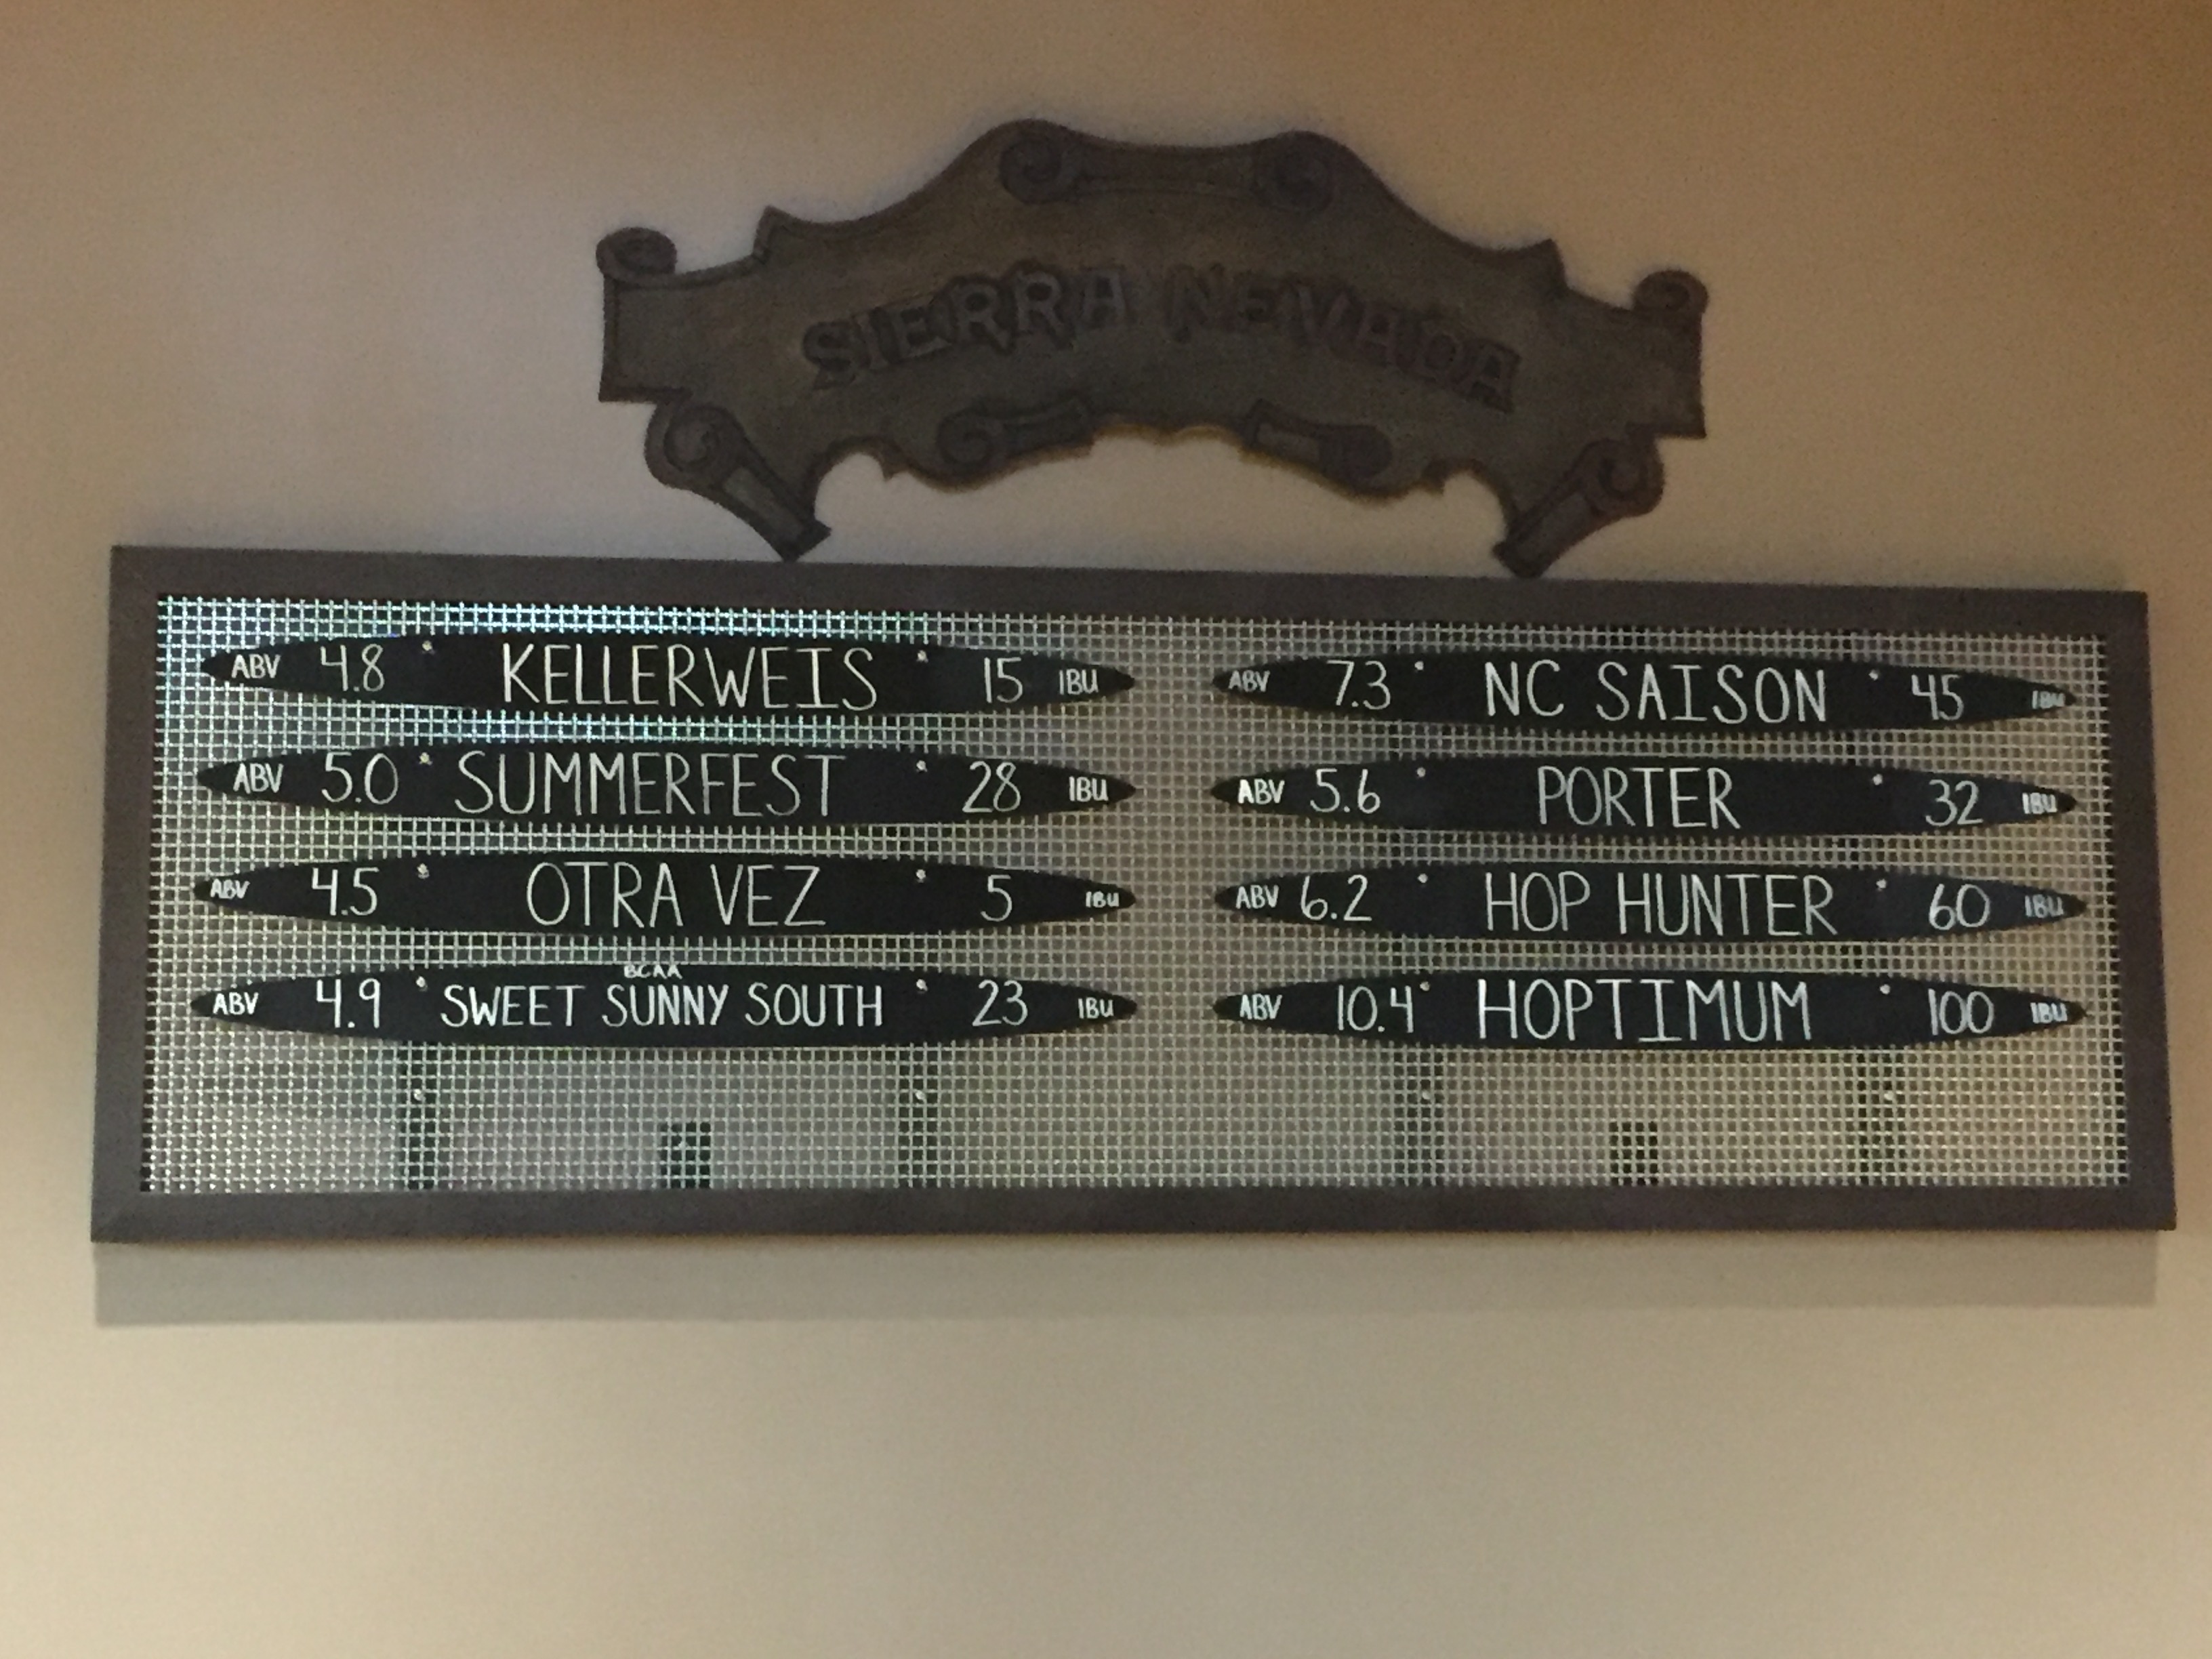 SIERRA NEVADA
ABV 4.8 KELLERWEIS 15 IBU
ABV 5.0 SUMMERFEST 28 IBU
ABV 4.5 OTRA VEZ 5 IBU
BCAA
ABV 4.9 SWEET SUNNY SOUTH 23 IBU
ABV 7.3 NC SAISON 45 IBU
ABV 5.6 PORTER 32 IBU
ABV 6.2 HOP HUNTER 60 IBU
ABV 10.4 HOPTIMUM 100 IBU